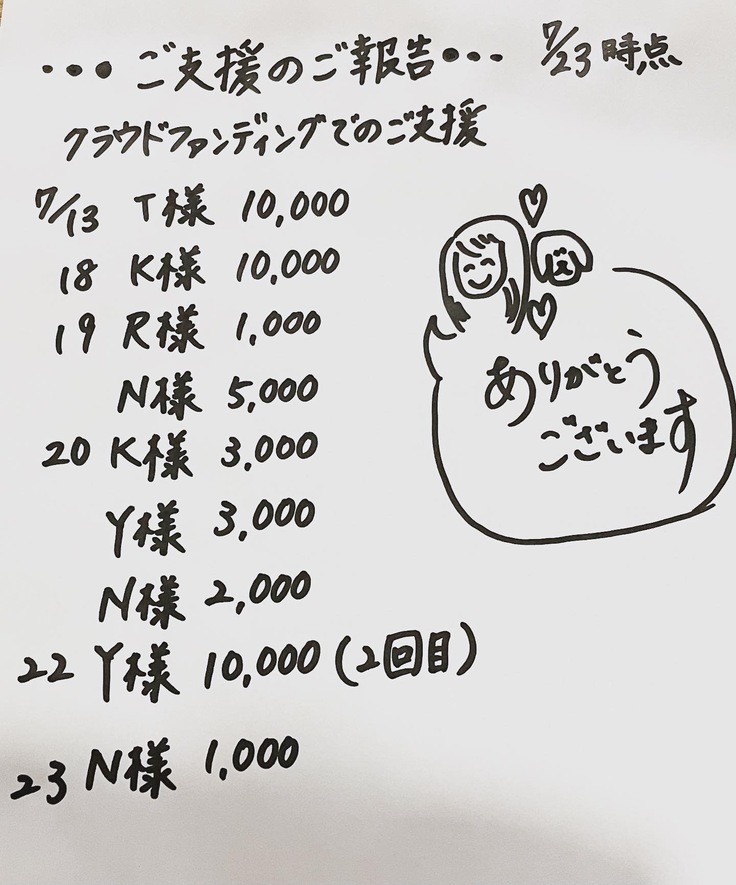 ・・・ご支援のご報告・・・ 7/23時点
クラウドファンディングでのご支援
7/13 T様 10,000
18 K様 10,000
19 R様 1,000
N様 5,000
20 K様 3,000
Y様 3,000
N様 2,000
22 Y様 10,000(2回目)
23 N様 1,000
ありがとう
ございます